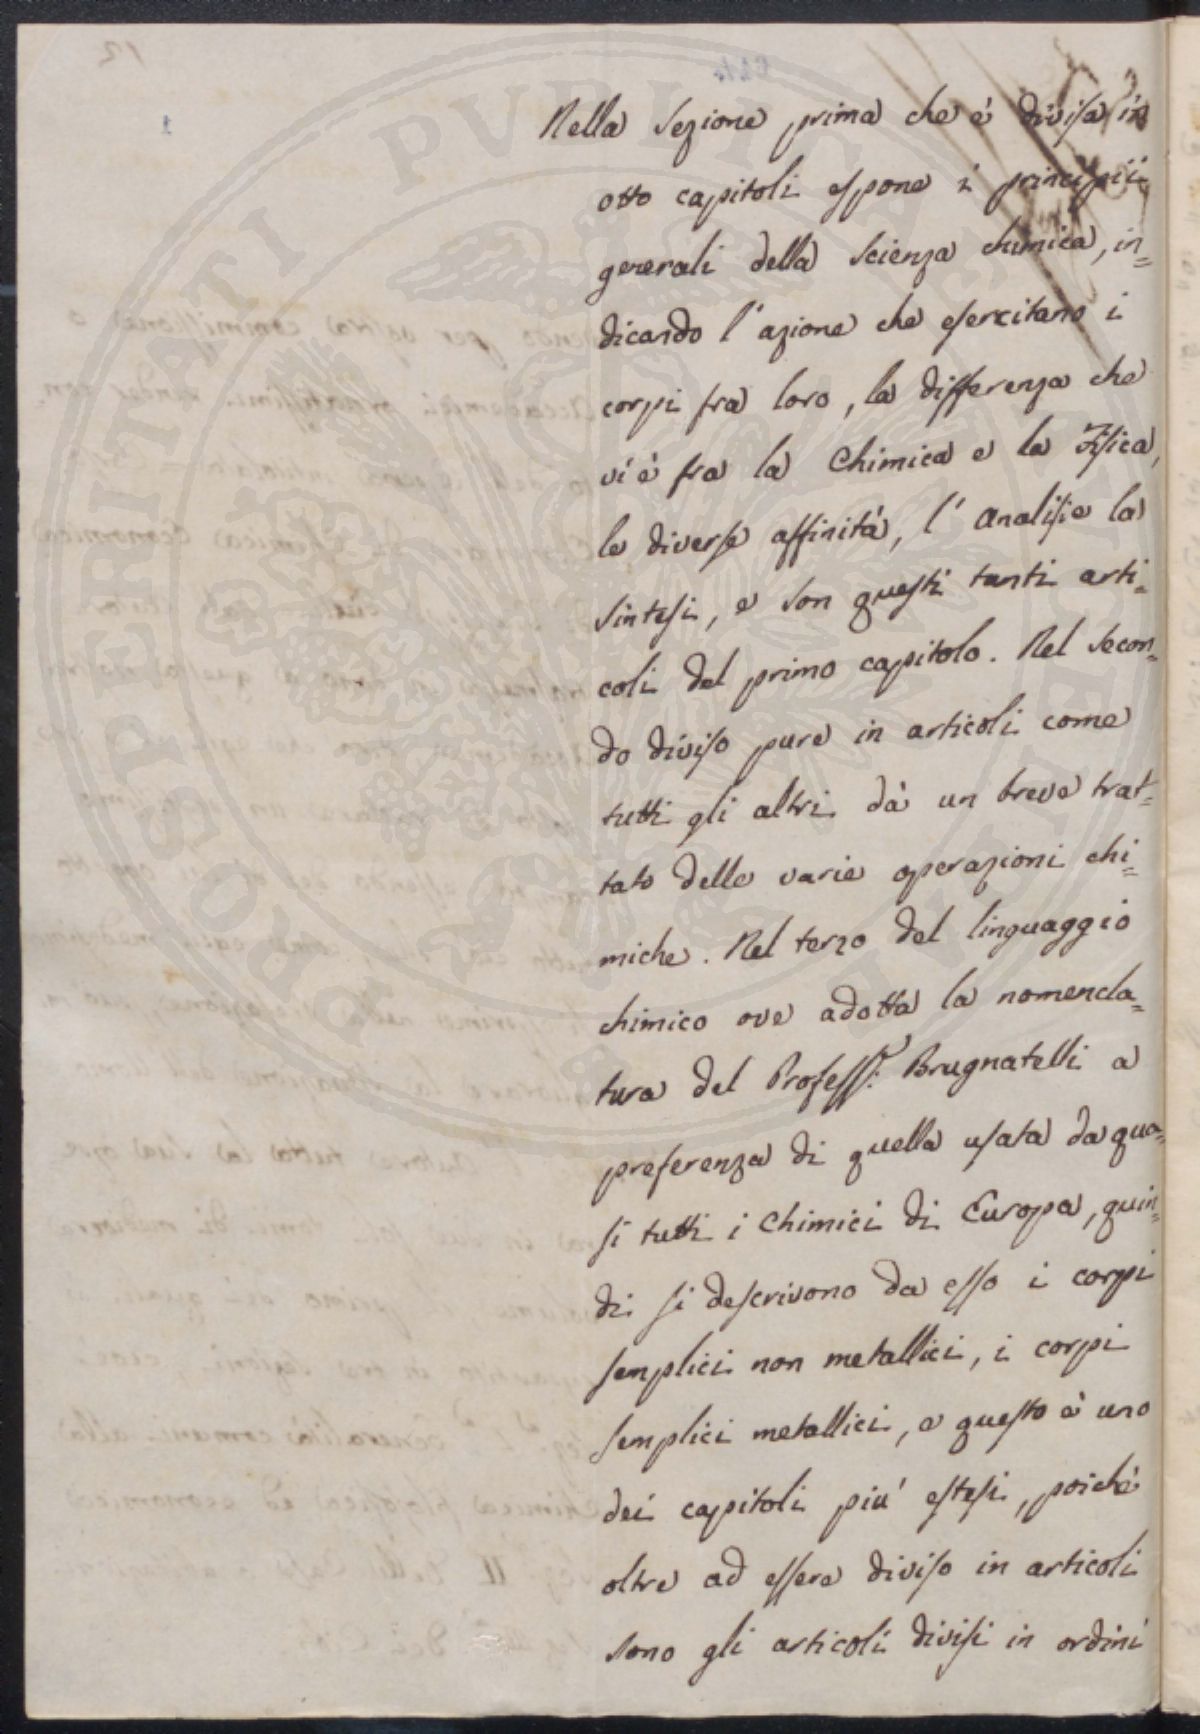 Nella Sezione prima che è divisa in
otto capitoli espone i principii
generali della Scienza chimica, in=
dicando l'azione che esercitano i
corpi fra loro, la differenza che
vi è fra la Chimica e la Fisica,
le diverse affinità, l'Analisi e la
Sintesi, e son questi tanti arti=
coli del primo capitolo. Nel Secon=
do diviso pure in articoli come
tutti gli altri dà un breve trat=
tato delle varie operazioni chi=
miche. Nel terzo del linguaggio
chimico ove adotta la nomencla=
tura del Profess.r Brugnatelli a
preferenza di quella usata da qua=
si tutti i Chimici di Europa, quin=
di si descrivono da esso i corpi
semplici non metallici, i corpi
semplici metallici, e questo è uno
dei capitoli più estesi, poichè
oltre ad essere diviso in articoli
sono gli articoli divisi in ordini
PROSPERITATI PVBLICAE AVGENDAE